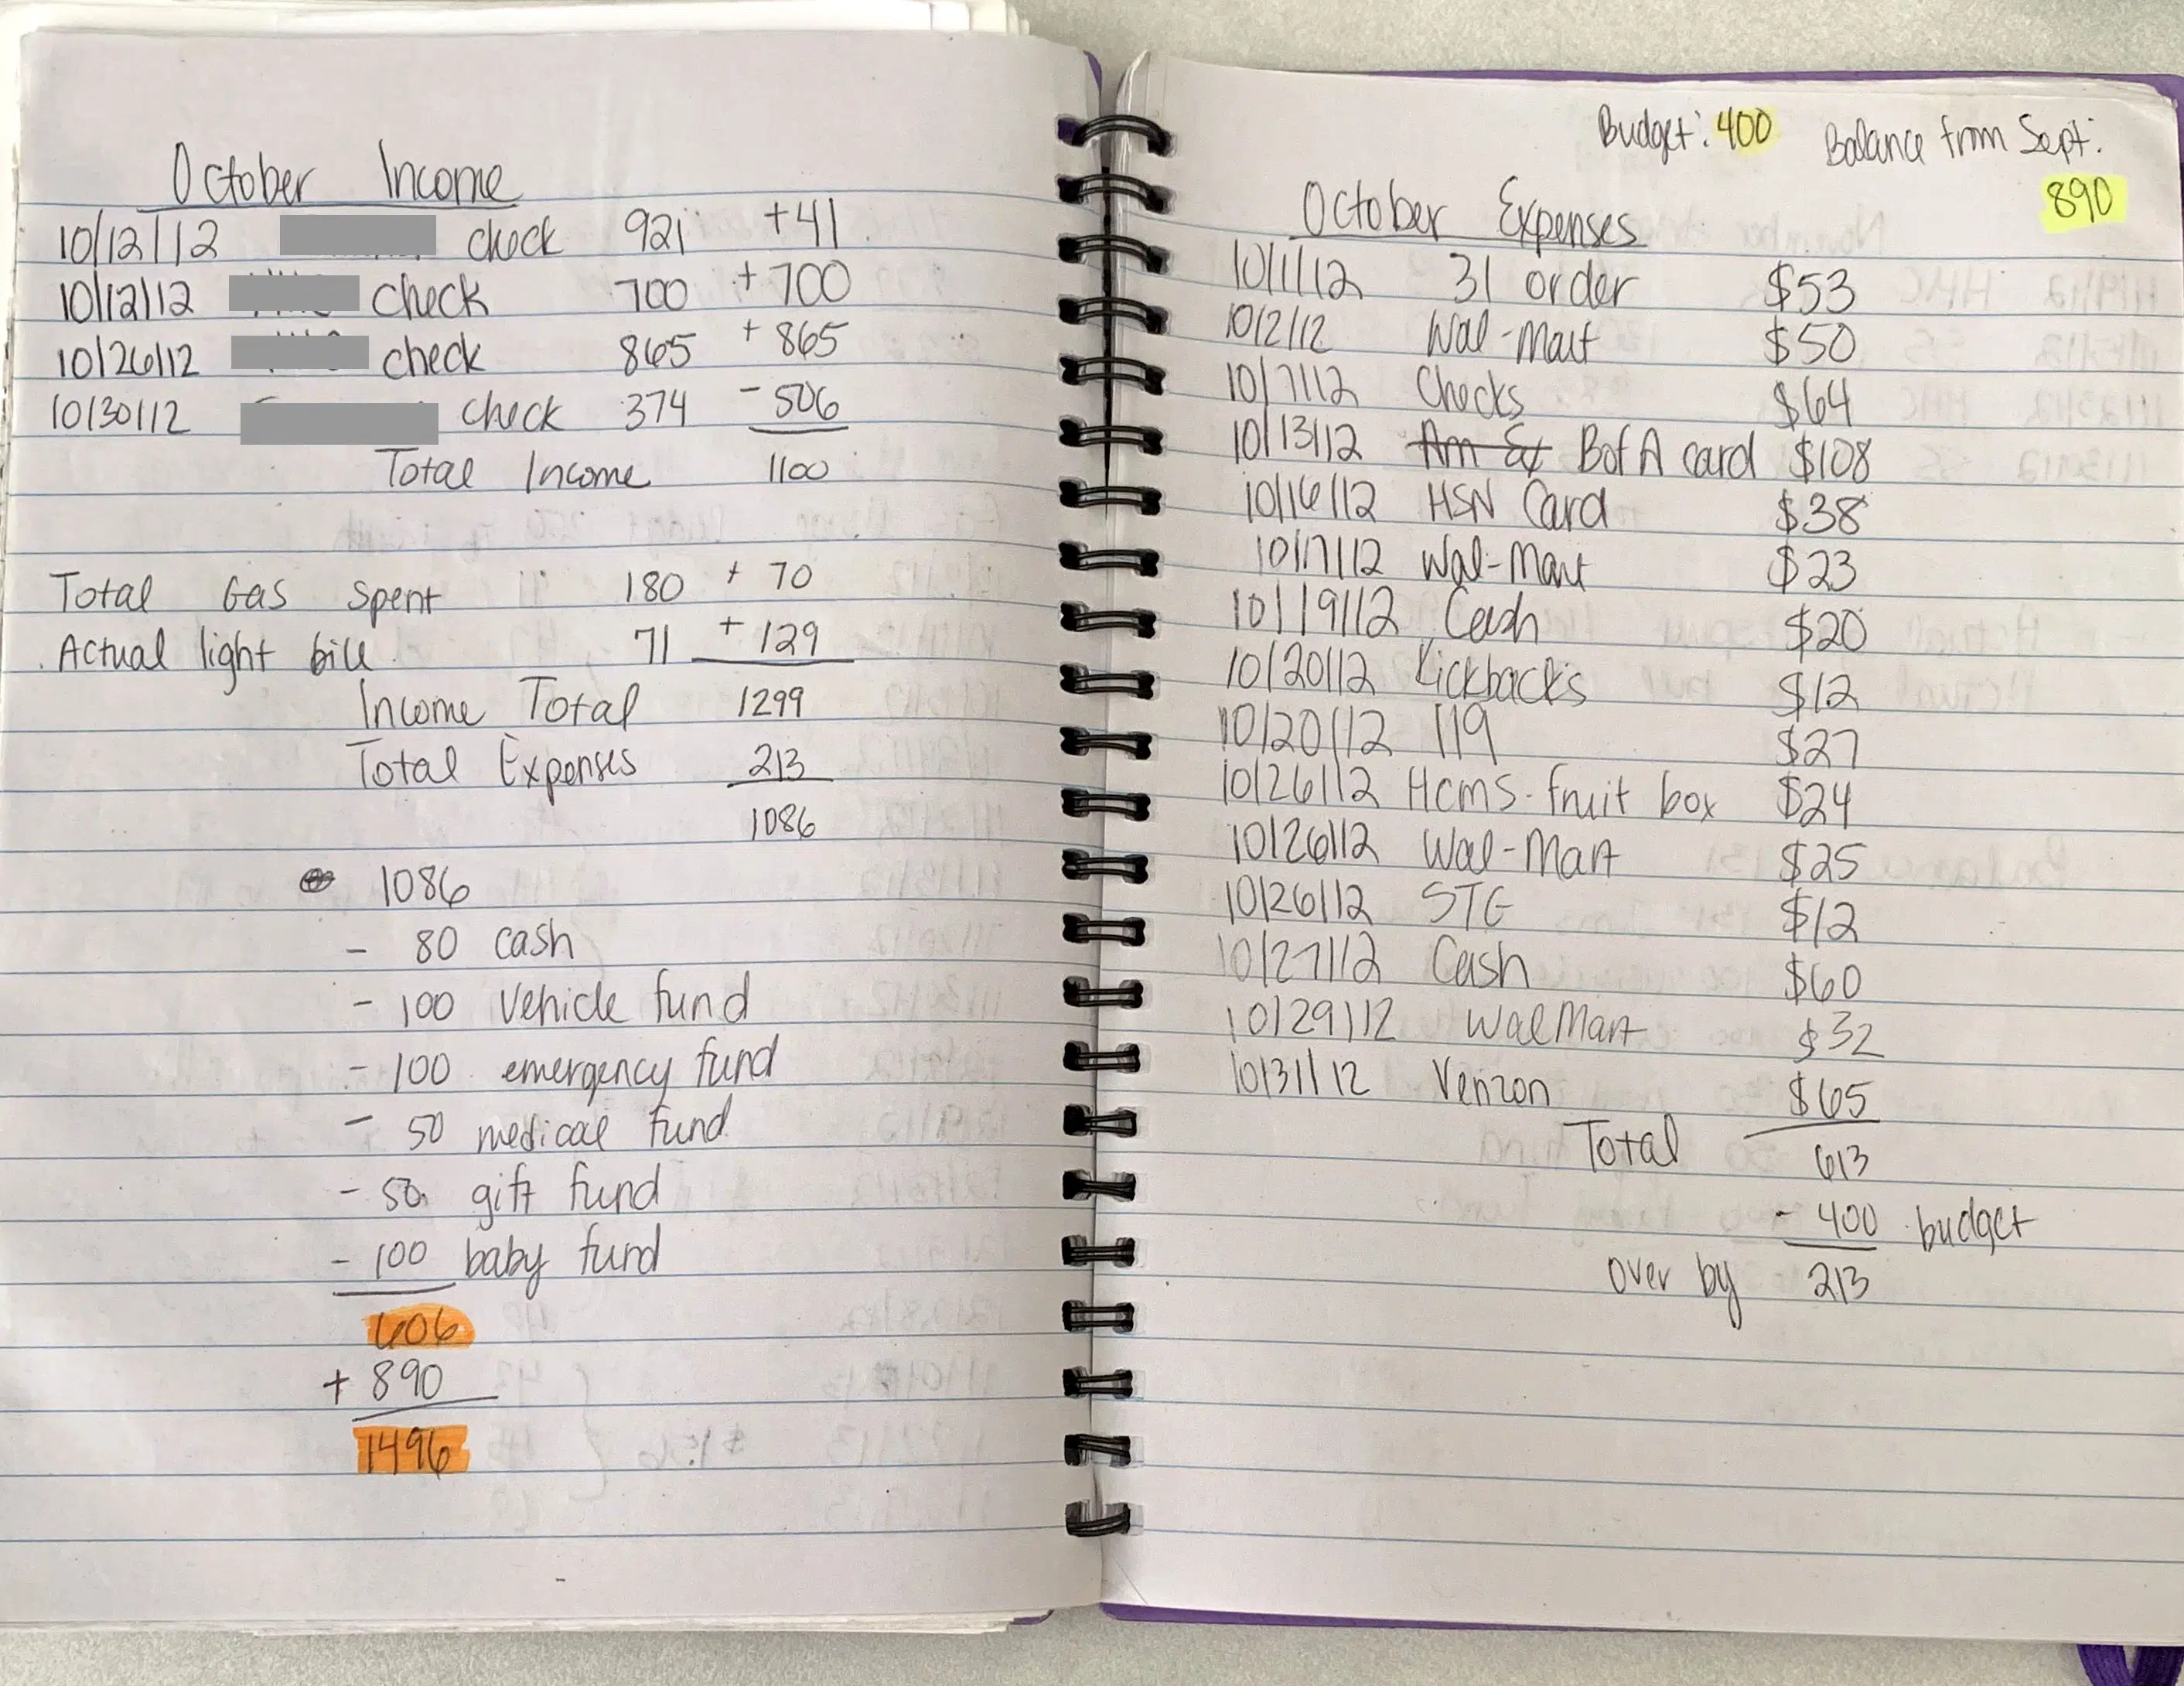 October Income
10/12/12 check 921 +41
10/12/12 check 700 +700
10/26/12 check 865 +865
10/30/12 check 374 -506
Total Income 1100
Total Gas Spent 180 +70
Actual light bill 71 +129
Income Total 1299
Total Expenses 213
1086
1086
- 80 cash
- 100 vehicle fund
- 100 emergency fund
- 50 medical fund
- 50 gift fund
- 100 baby fund
606
+ 890
1496
Budget: 400 Balance from Sept:
890
October Expenses
10/1/12 31 order $53
10/2/12 Wal-Mart $50
10/7/12 Checks $64
10/13/12 Am Ex BofA card $108
10/16/12 HSN Card $38
10/17/12 Wal-Mart $23
10/19/12 Cash $20
10/20/12 Kickbacks $12
10/20/12 119 $27
10/26/12 Hcms-fruit box $24
10/26/12 Wal-Mart $25
10/26/12 STG $12
10/27/12 Cash $60
10/29/12 WalMart $32
10/31/12 Verizon $65
Total 613
- 400 budget
over by 213